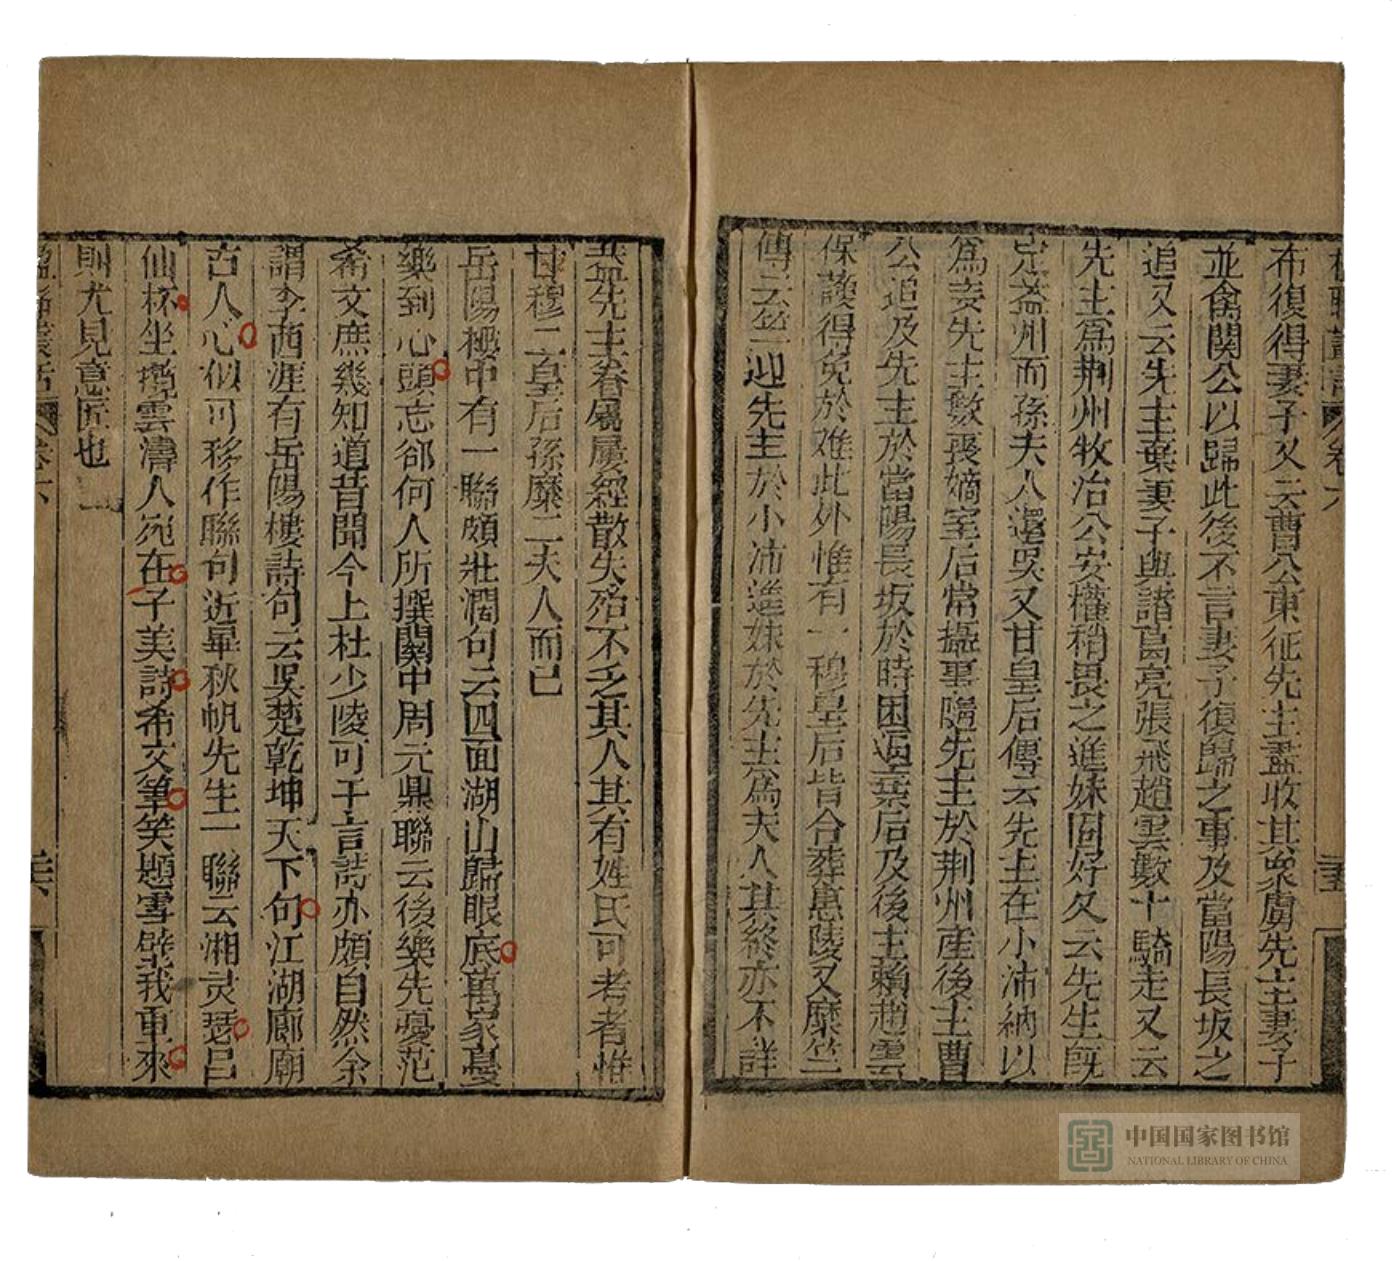 楹聯叢話 卷六
布復得妻子又云曹公東征先主盡收其衆虜先主妻子
並禽關公以歸此後不言妻子復歸之事及當陽長坂之
追又云先主棄妻子與諸葛亮張飛趙雲數十騎走又云
先主爲荆州牧治公安權稍畏之進妹固好久云先生旣
定益州而孫夫人還吳又甘皇后傳云先主在小沛納以
爲妾先主數喪嫡室后常攝事隨先主於荆州產後主曹
公追及先主於當陽長坂於時困逼棄后及後主賴趙雲
保護得免於难此外惟有一穆皇后皆合葬惠陵又糜竺
傳云竺迎先主於小沛進妹於先主爲夫人其終亦不詳
葢先主眷屬屢經散失殆不乏其人其有姓氏可考者惟
甘穆二皇后孫糜二夫人而已
岳陽樓中有一聯頗壯濶句云四面湖山歸眼底萬家憂
樂到心頭忘郤何人所撰闗中周元鼎聯云後樂先憂范
希文庶幾知道昔聞今上杜少陵可干言詩亦頗自然余
謂李西涯有岳陽樓詩句云吳楚乾坤天下句江湖廊廟
古人心似可移作聯句近畢秋帆先生一聯云湘灵瑟呂
仙杯坐攬雲濤人宛在子美詩希文筆笑題雪壁我重來
則尤見意匠也
楹聯叢話 卷六
中国国家图书馆
NATIONAL LIBRARY OF CHINA